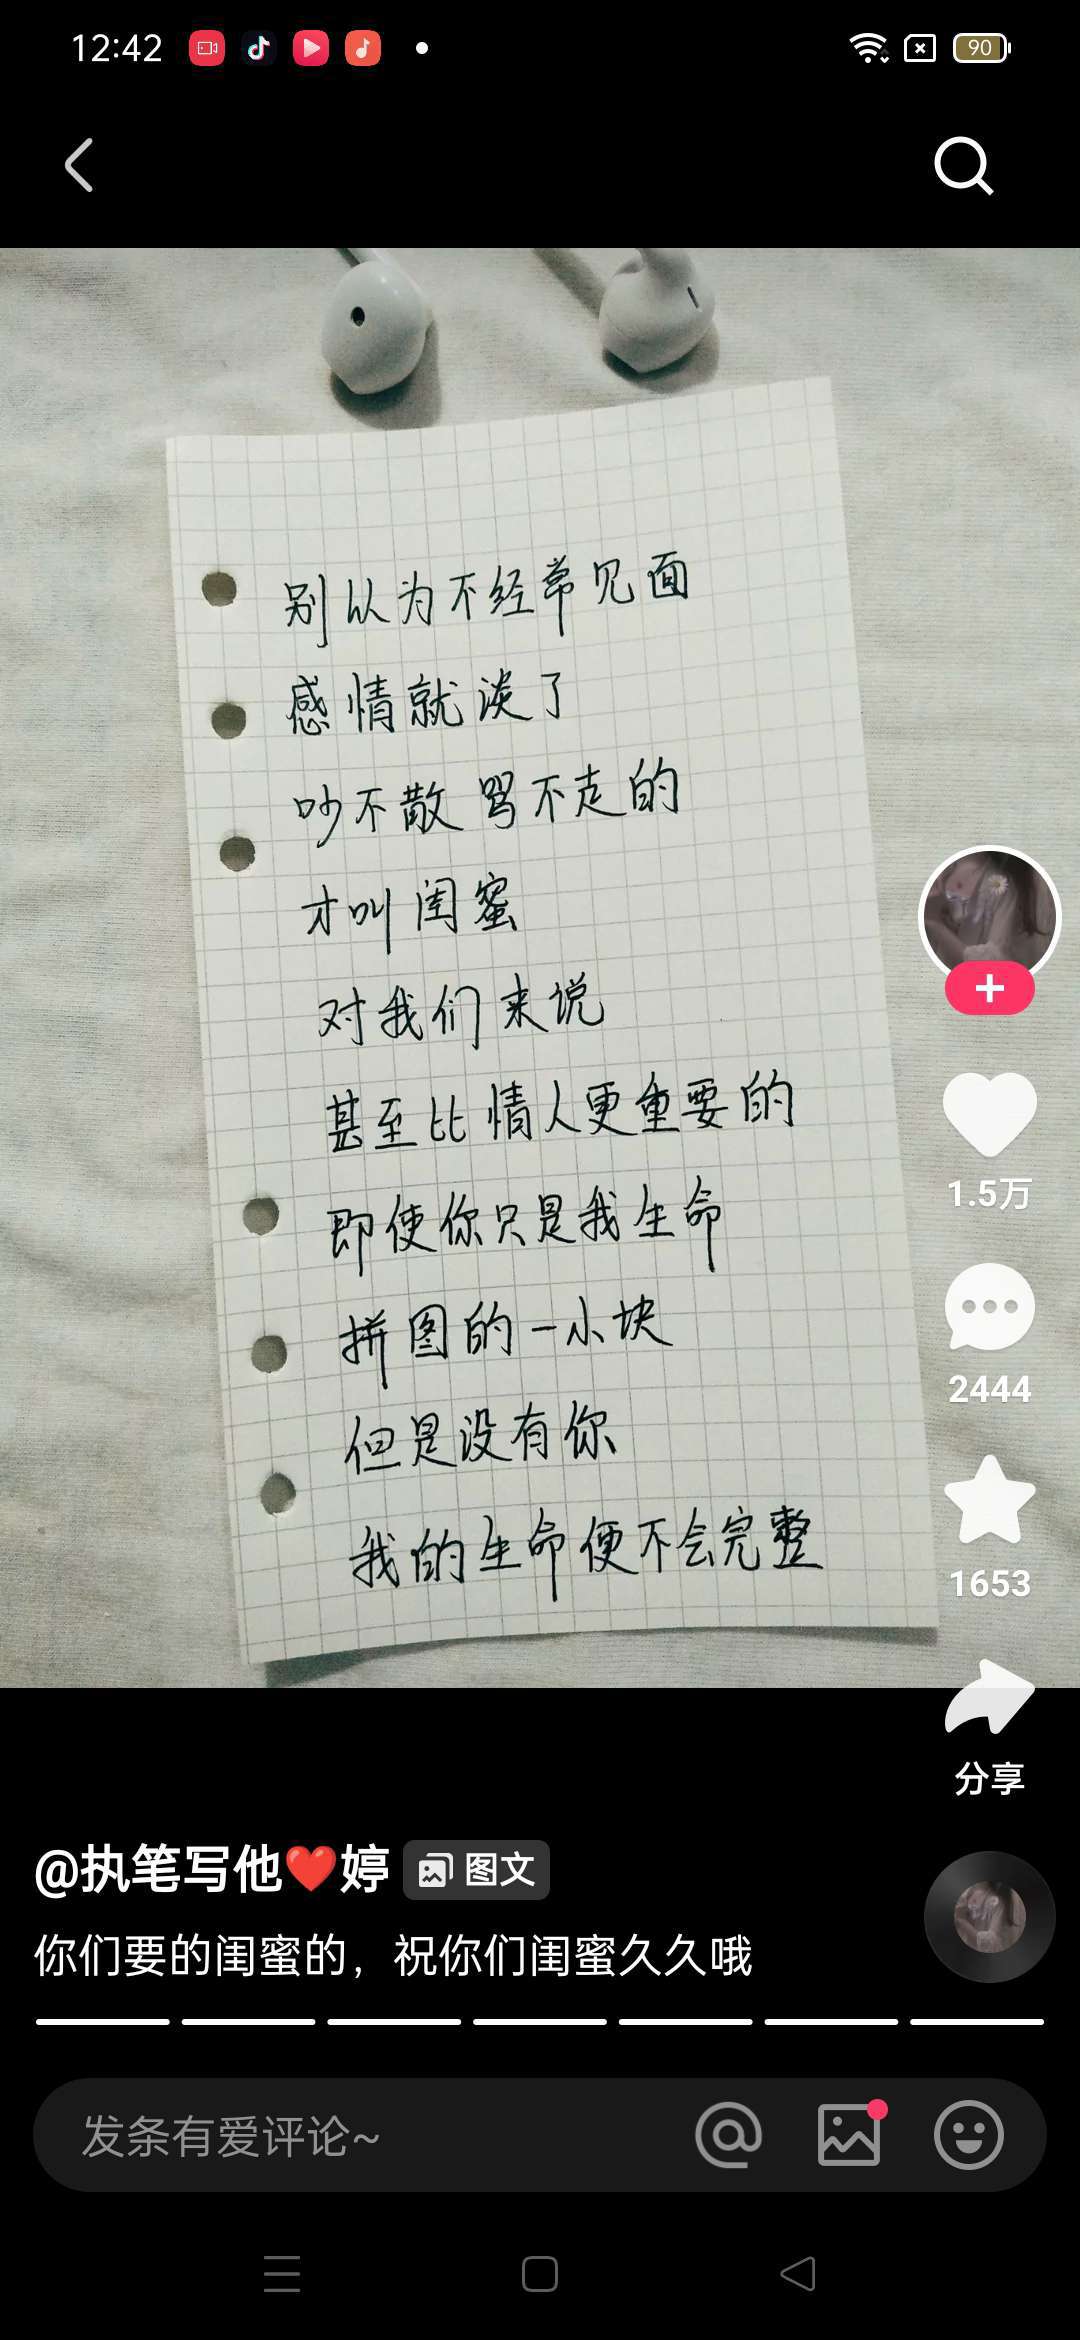 12:42
90
别以为不经常见面
感情就淡了
吵不散 骂不走的
才叫闺蜜
对我们来说
甚至比情人更重要的
即使你只是我生命
拼图的一小块
但是没有你
我的生命便不会完整
1.5万
2444
1653
分享
@执笔写他❤️婷 图文
你们要的闺蜜的，祝你们闺蜜久久哦
发条有爱评论~